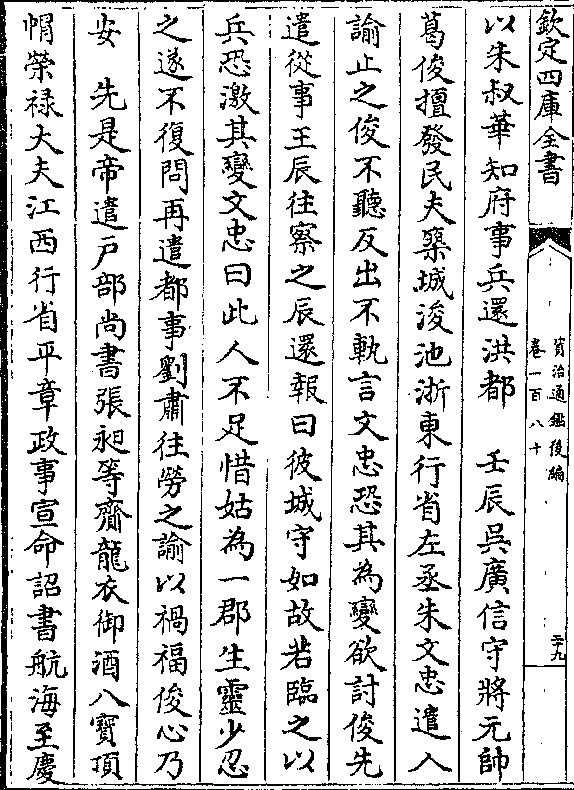 欽定四庫全書
資治通鑑後編
卷一百八十
二十九
以朱叔華知府事兵還洪都　壬辰吳廣信守將元帥
葛俊擅發民夫築城浚池浙東行省左丞朱文忠遣人
諭止之俊不聽反出不軌言文忠恐其為變欲討俊先
遣從事王辰往察之辰還報曰彼城守如故若臨之以
兵恐激其變文忠曰此人不足惜姑為一郡生靈少忍
之遂不復問再遣都事劉肅往勞之諭以禍福俊心乃
安　先是帝遣戶部尚書張昶等齎龍衣御酒八寶頂
帽榮祿大夫江西行省平章政事宣命詔書航海至慶